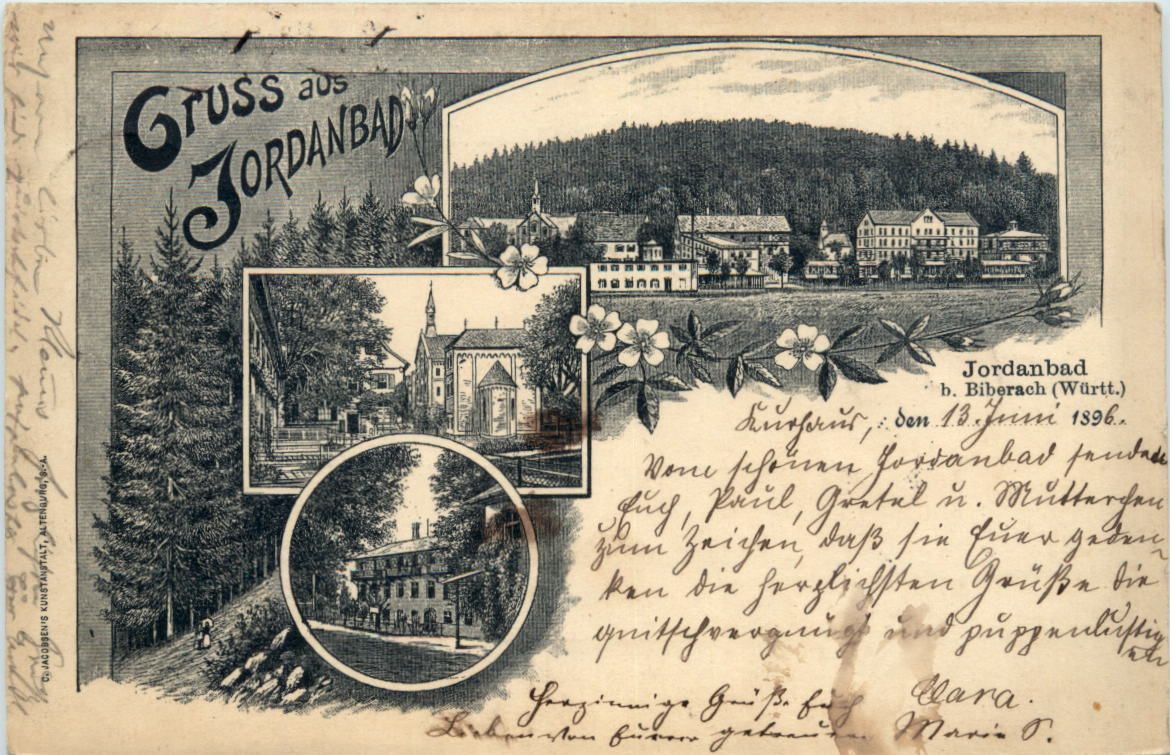 GRUSS aus
JORDANBAD
Jordanbad
b. Biberach (Württ.)
Kurhaus, den 13. Juni 1896.
Vom schönen Jordanbad senden
Euch, Paul, Gretel u. Mutterchen
zum Zeichen, daß sie Euer geden-
ken die herzlichsten Grüße die
quitschvergnügt und puppenlustigen
Clara.
Herzinnige Grüße Euch
Lieben von Eurer getreuen Marie S.
C. JACOBSEN'S KUNSTANSTALT, ALTENBURG, S.-A.